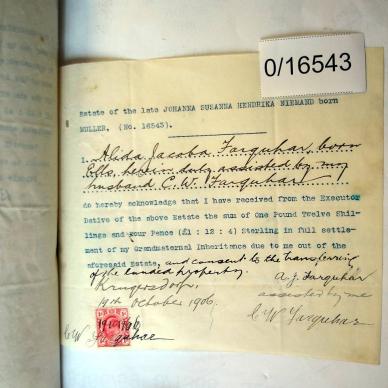 0/16543
Estate of the late JOHANNA SUSANNA HENDRIKA NIEMAND born
MULLER, (No. 16543).
I, Alida Jacoba Farquhar, born
Els, herein duly assisted by my
husband C. W. Farquhar
do hereby acknowledge that I have received from the Executor
Dative of the above Estate the sum of One Pound Twelve Shil-
lings and Four Pence (£1 : 12 : 4) Sterling in full settle-
ment of my Grandmaternal Inheritance due to me out of the
aforesaid Estate, and consent to the transferring
of the landed property.
Krugersdorp
19th October 1906.
A. J. Farquhar
assisted by me
C W Farquhar
19/10/1906
C W Farquhar